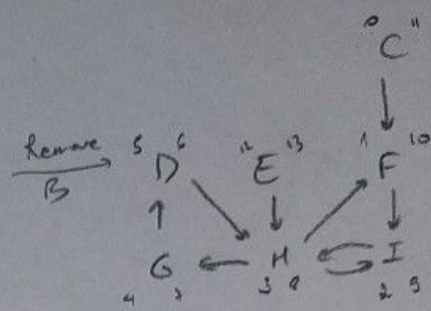 0 C 11
Remove
B
5 D 6
12 E 13
1 F 10
G
4 7
H
3 8
I
2 9